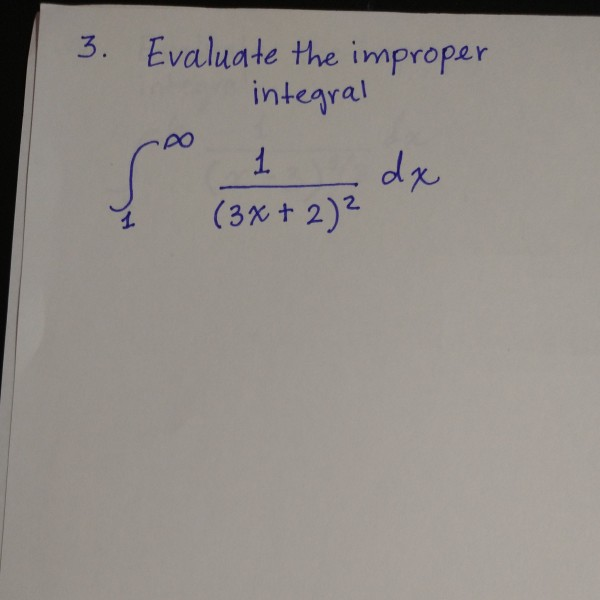 3. Evaluate the improper
integral
∫₁^∞ 1/(3x + 2)² dx